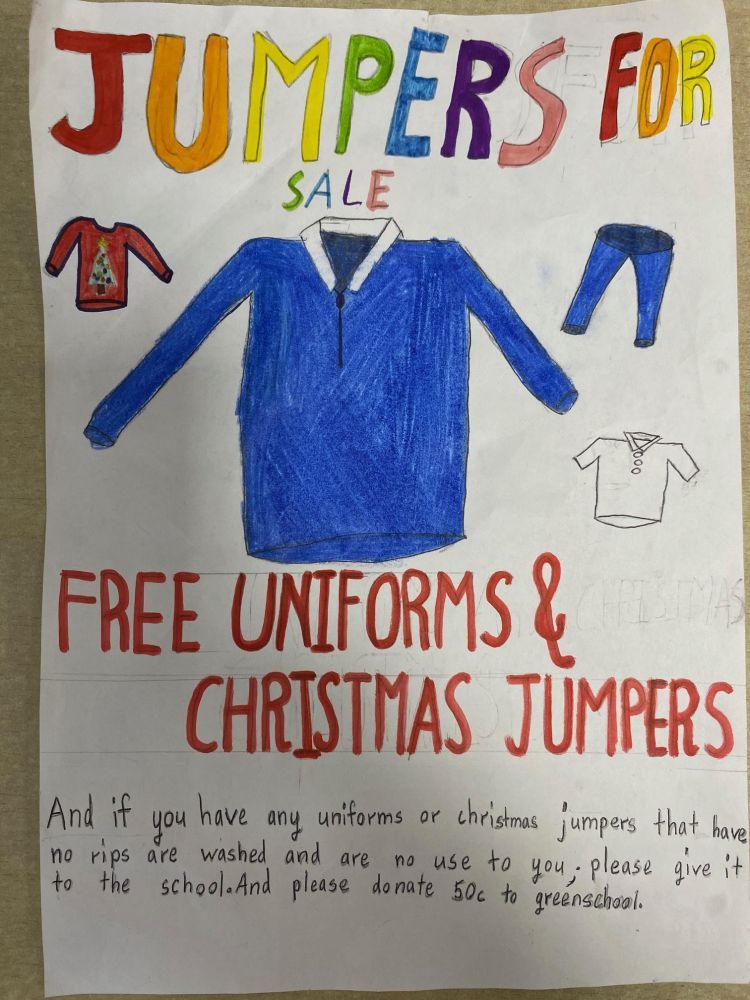 JUMPERS FOR
SALE
FREE UNIFORMS &
CHRISTMAS JUMPERS
And if you have any uniforms or christmas jumpers that have
no rips are washed and are no use to you, please give it
to the school. And please donate 50c to greenschool.